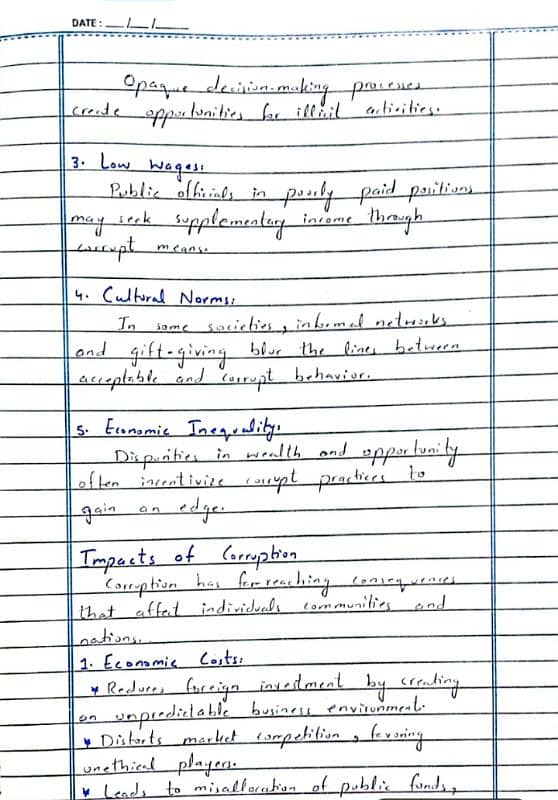 DATE: __/__/____
Opaque decision-making processes
create opportunities for illicit activities.
3. Low Wages:
Public officials in poorly paid positions
may seek supplementary income through
corrupt means.
4. Cultural Norms:
In some societies, informal networks
and gift-giving blur the lines between
acceptable and corrupt behavior.
5. Economic Inequality:
Disparities in wealth and opportunity
often incentivize corrupt practices to
gain an edge.
Impacts of Corruption
Corruption has far-reaching consequences
that affect individuals communities and
nations.
1. Economic Costs:
* Reduces foreign investment by creating
an unpredictable business environment.
* Distorts market competition, favoring
unethical players.
* Leads to misallocation of public funds,